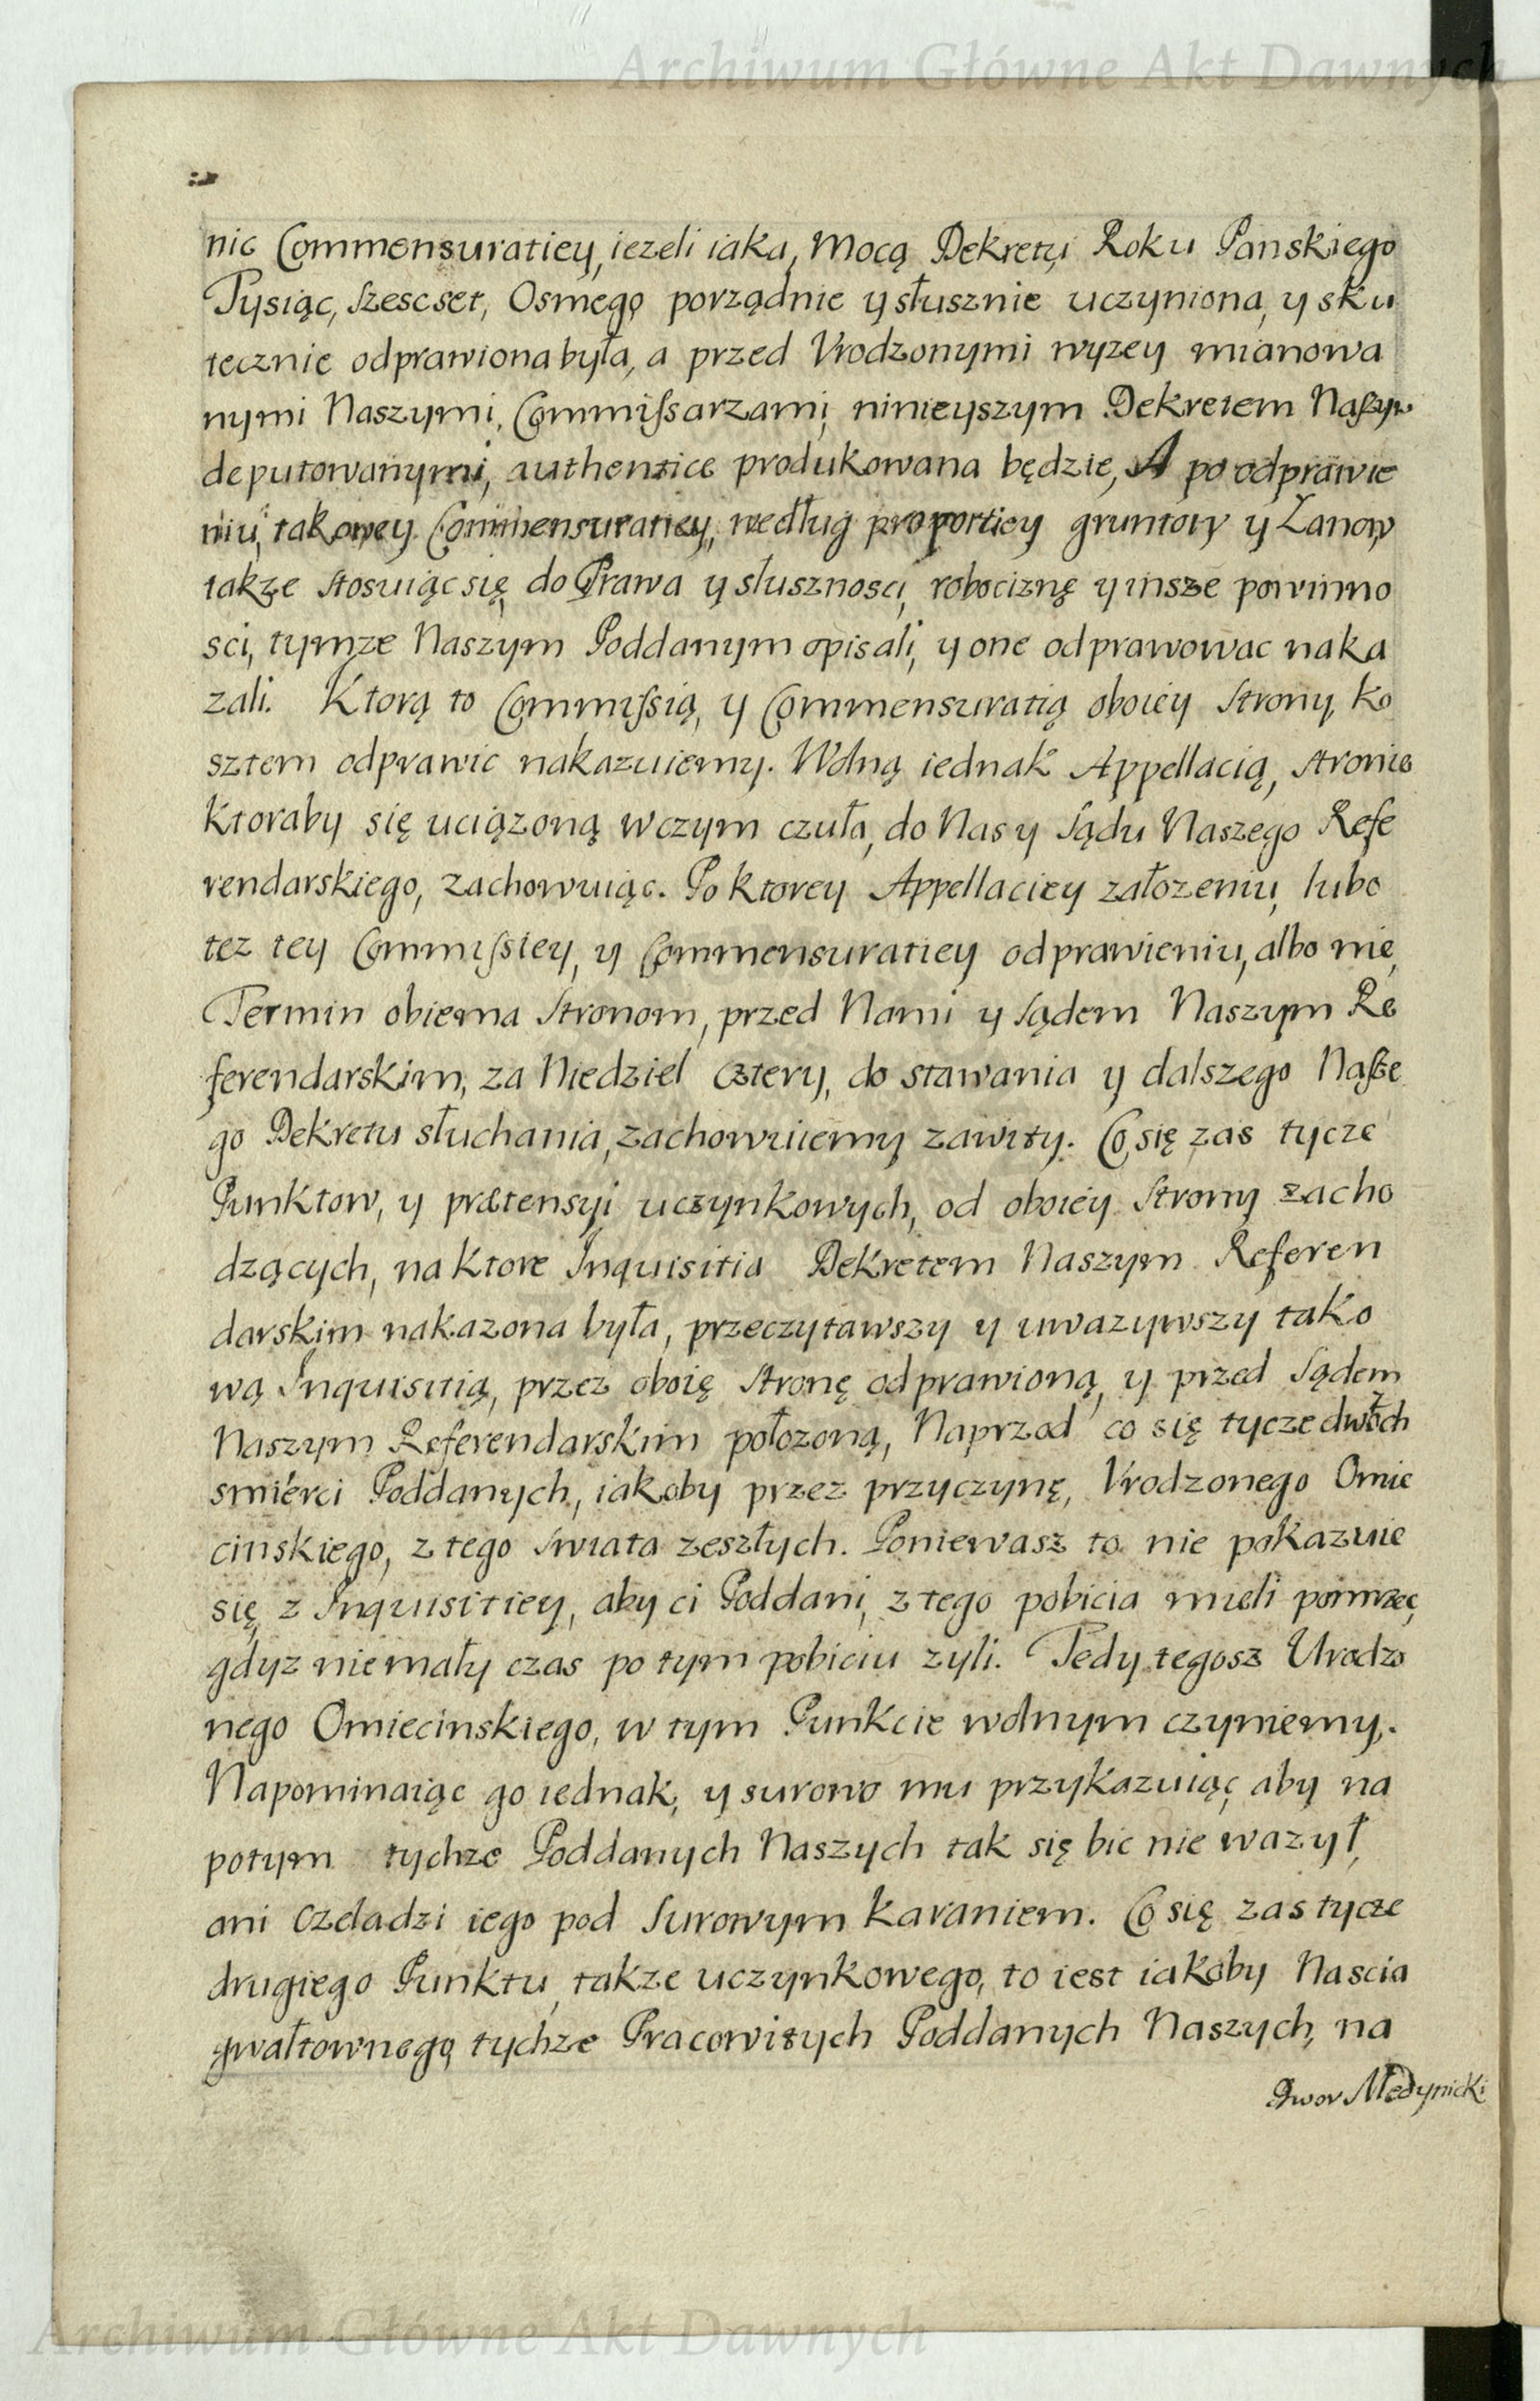 Archiwum Główne Akt Dawnych
nic Commensuratiey, iezeli iaka, Mocą Dekretu Roku Panskiego
Tysiąc, Szescset, Osmego porządnie y słusznie uczyniona, y sku
tecznie odprawiona była, a przed Vrodzonymi wyzey mianowa
nymi Naszymi, Commissarzami, ninieyszym Dekretem Naszym
deputowanymi, authentice produkowana będzie, A po odprawie
niu, takowey Commensuratiey, według proportiey gruntow y Łanow,
takze stosuiąc się do Prawa y slusznosci, robociznę y insze powinno
sci, tymze Naszym Poddanym opisali, y one odprawowac naka
zali. Ktorą to Commissią, y Commensuratią oboiey Strony, ko
sztem odprawic nakazuiemy. Wolną iednak Appellacią, stronie
ktoraby się uciązoną w czym czuła, do Nas y Sądu Naszego Refe
rendarskiego, zachowuiąc. Po ktorey Appellaciey załozeniu, lubo
tez tey Commissiey, y Commensuratiey odprawieniu, albo nie,
Termin obiema Stronom, przed Nami y Sądem Naszym Re
ferendarskim, za Niedziel cztery, do stawania y dalszego Nasze
go Dekretu słuchania, zachowuiemy zawity. Co się zas tycze
Punktow, y prætensyi uczynkowych, od oboiey Strony zacho
dzących, na ktore Inquisitia Dekretem Naszym Referen
darskim nakazona była, przeczytawszy y uwazywszy tako
wą Inquisitią, przez oboię stronę odprawioną, y przed Sądem
Naszym Referendarskim połozoną, Naprzod co się tycze dwoch
smierci Poddanych, iakoby przez przyczynę, Vrodzonego Omie
cinskiego, z tego swiata zeszłych. Poniewasz to nie pokazuie
się z Inquisitiey, aby ci Poddani, z tego pobicia mieli pomrzec,
gdyz niemały czas po tym pobiciu zyli. Tedy tegosz Urodzo
nego Omiecinskiego, w tym Punkcie wolnym czyniemy.
Napominaiąc go iednak, y surowo mu przykazuiąc, aby na
potym tychze Poddanych Naszych tak się bic nie wazył,
ani czeladzi iego pod Surowym karaniem. Co się zas tycze
drugiego Punktu, takze uczynkowego, to iest iakoby Nascia
gwałtownego, tychze Pracowitych Poddanych Naszych, na
Dwor Medynicki
Archiwum Główne Akt Dawnych